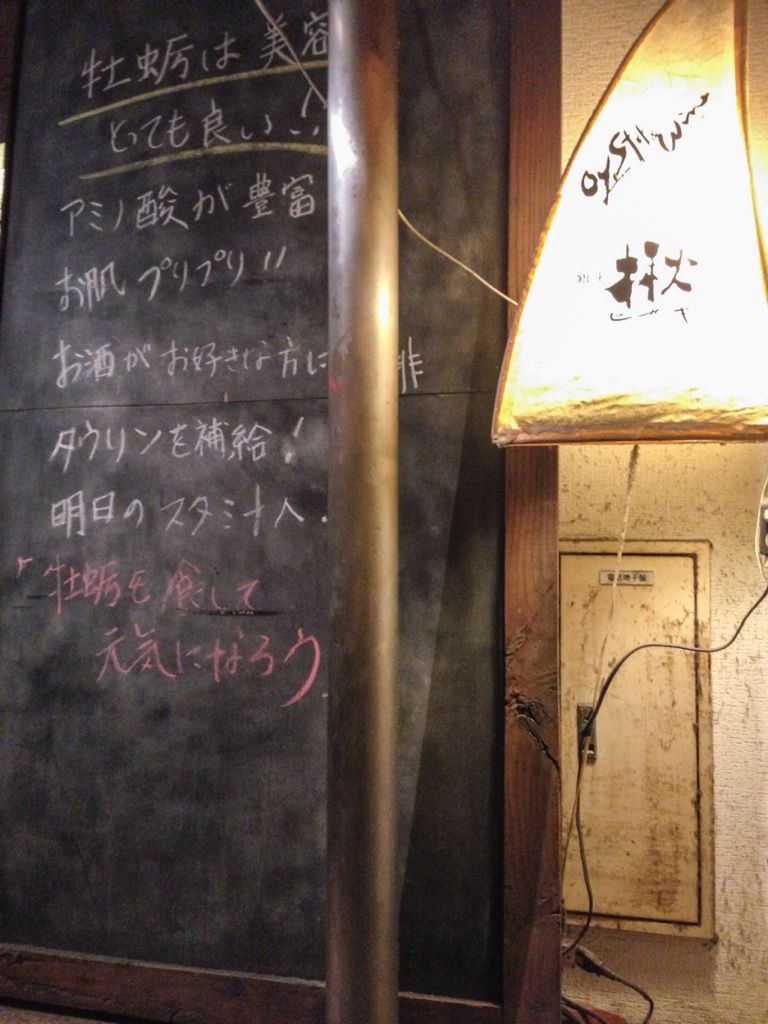 牡蛎は美容
とても良い!!
アミノ酸が豊富
お肌プリプリ!!
お酒がお好きな方に 非
タウリンを補給!
明日のスタミナへ.
「牡蛎を食して
元気になろう